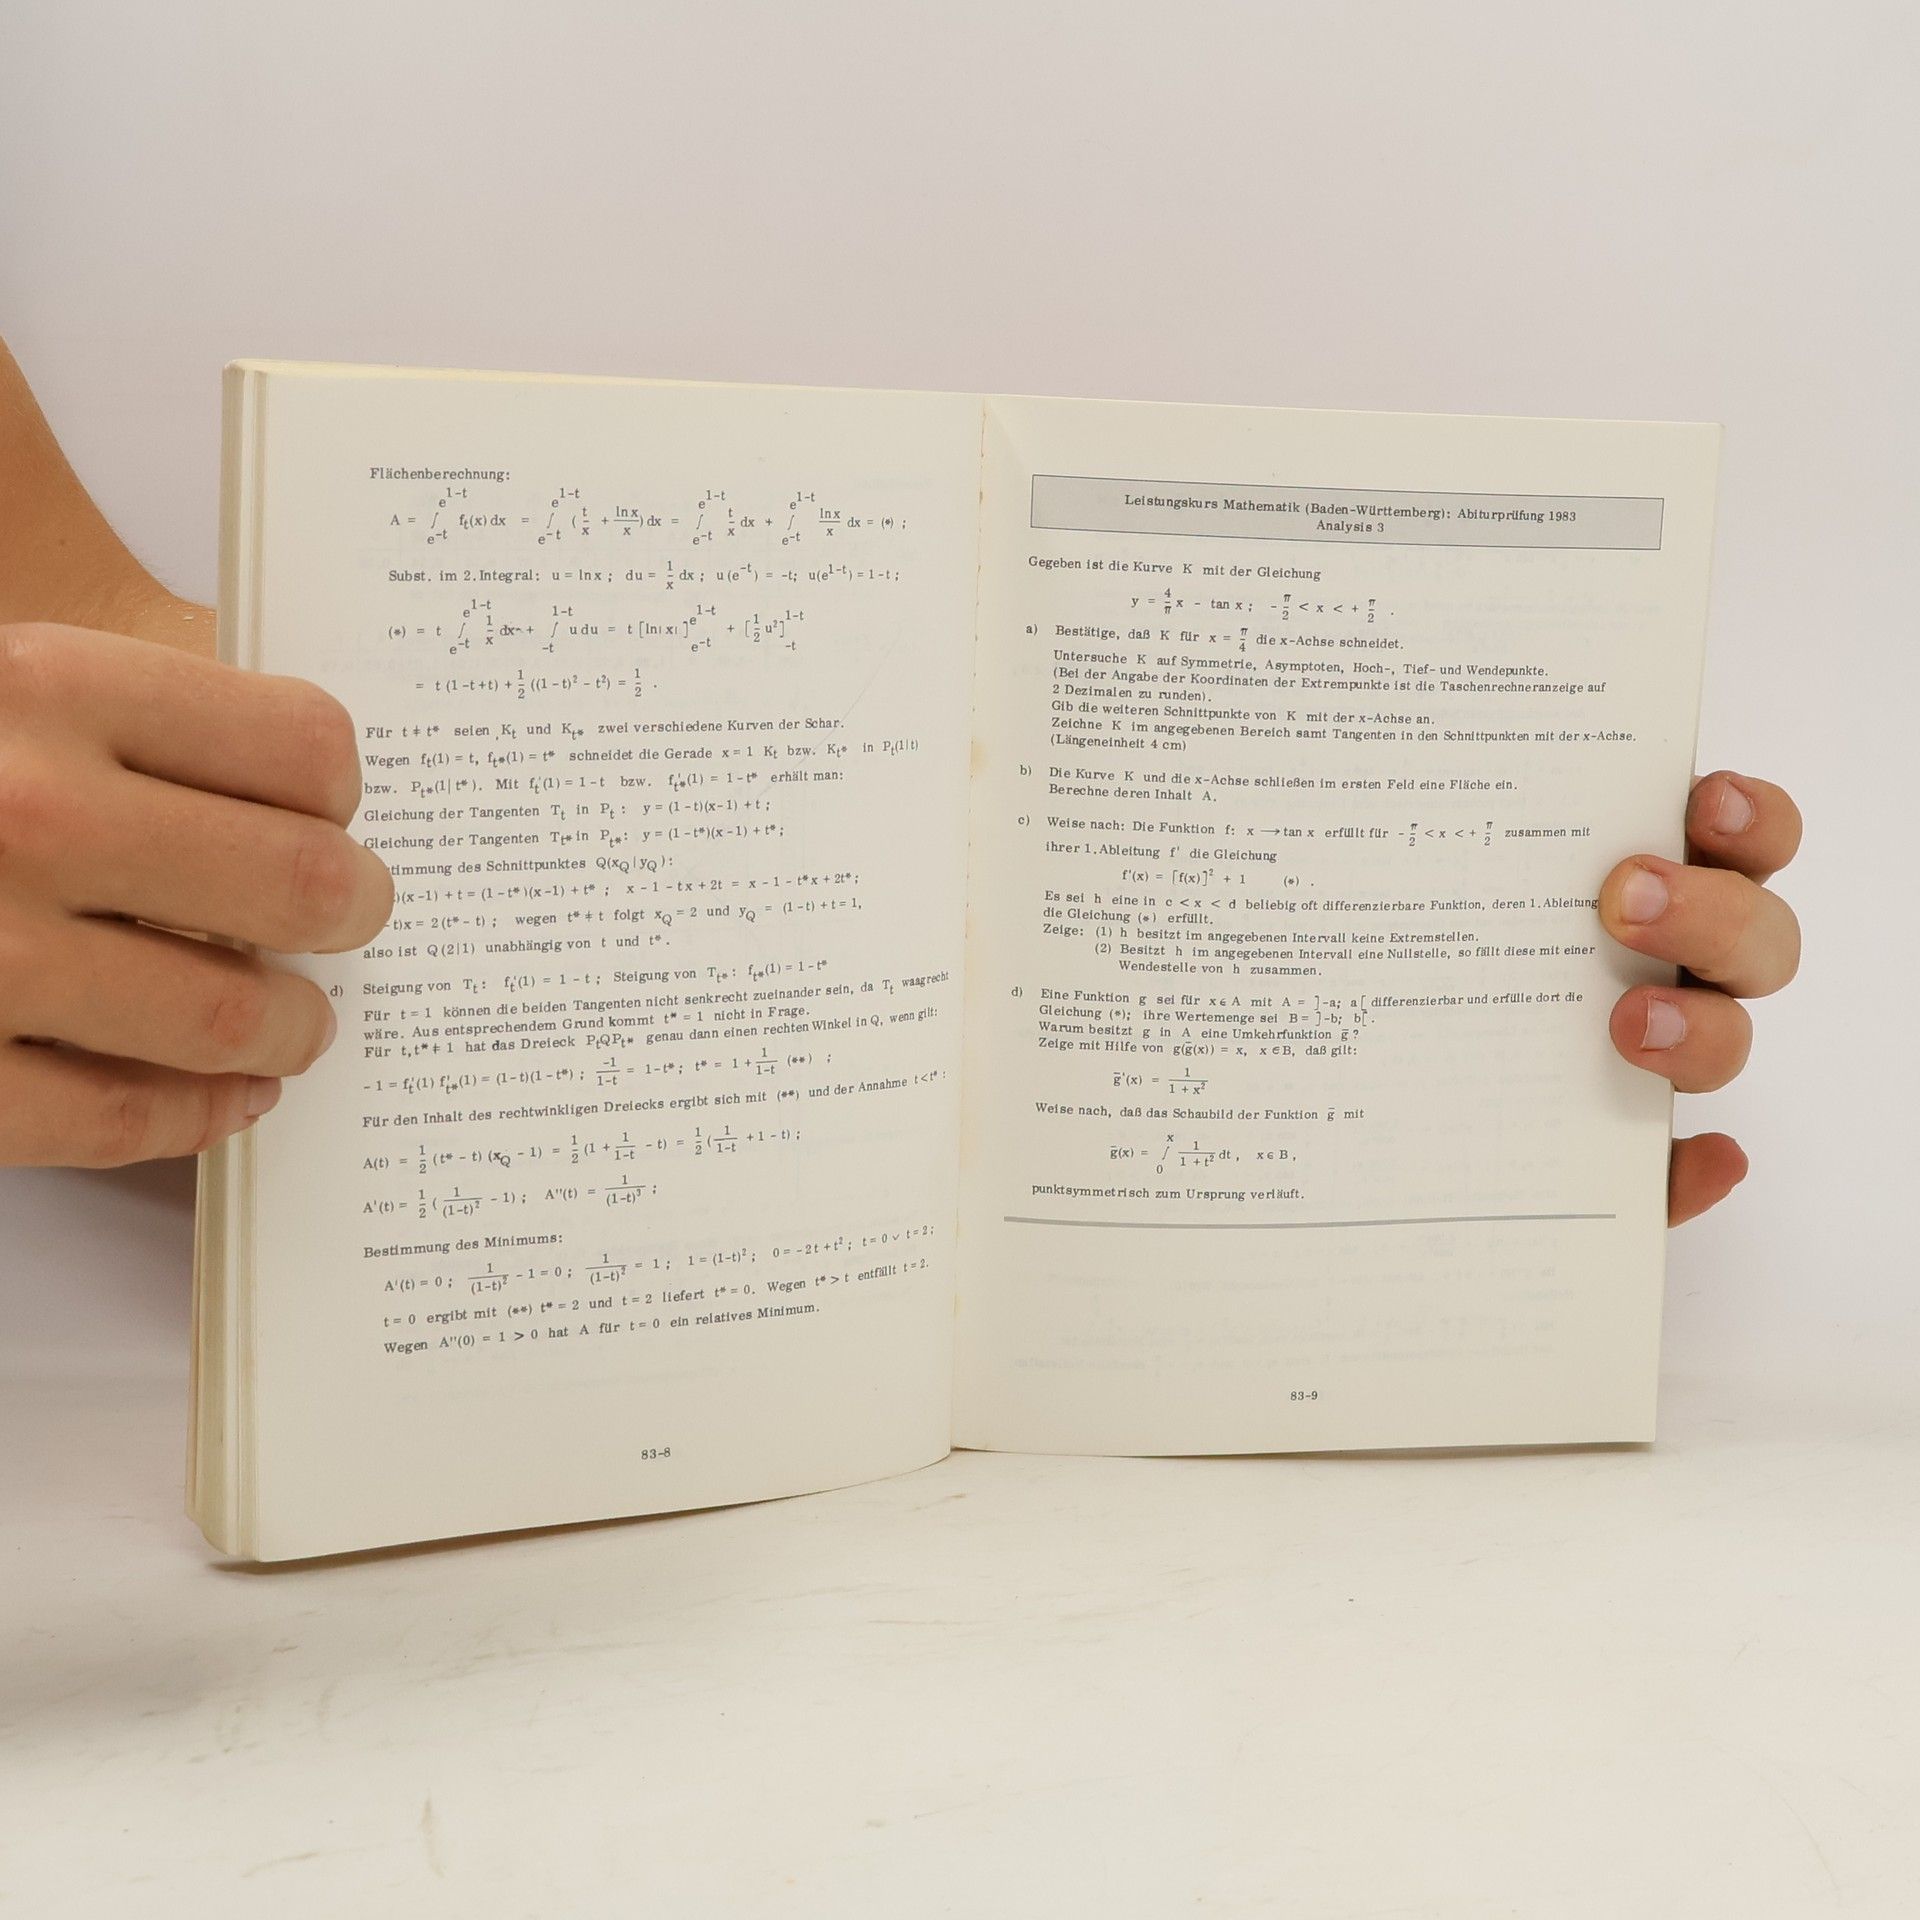 Flächenberechnung:
A = ∫_{e^{-t}}^{e^{1-t}} f_t(x) dx = ∫_{e^{-t}}^{e^{1-t}} (t/x + ln x/x) dx = ∫_{e^{-t}}^{e^{1-t}} t/x dx + ∫_{e^{-t}}^{e^{1-t}} ln x/x dx = (*) ;
Subst. im 2.Integral: u = ln x ; du = 1/x dx ; u(e^{-t}) = -t; u(e^{1-t}) = 1-t ;
(*) = t ∫_{e^{-t}}^{e^{1-t}} 1/x dx + ∫_{-t}^{1-t} u du = t [ln|x|]_{e^{-t}}^{e^{1-t}} + [1/2 u²]_{-t}^{1-t}
= t (1-t+t) + 1/2 ((1-t)² - t²) = 1/2 .
Für t ≠ t* seien K_t und K_{t*} zwei verschiedene Kurven der Schar.
Wegen f_t(1) = t, f_{t*}(1) = t* schneidet die Gerade x = 1 K_t bzw. K_{t*} in P_t(1|t)
bzw. P_{t*}(1|t*). Mit f_t'(1) = 1-t bzw. f_{t*}'(1) = 1-t* erhält man:
Gleichung der Tangenten T_t in P_t : y = (1-t)(x-1) + t ;
Gleichung der Tangenten T_{t*} in P_{t*}: y = (1-t*)(x-1) + t* ;
timmung des Schnittpunktes Q(x_Q|y_Q):
)(x-1) + t = (1-t*)(x-1) + t* ; x - 1 - tx + 2t = x - 1 - t*x + 2t*;
t)x = 2(t* - t) ; wegen t* ≠ t folgt x_Q = 2 und y_Q = (1-t) + t = 1,
also ist Q(2|1) unabhängig von t und t*.
d) Steigung von T_t : f_t'(1) = 1 - t ; Steigung von T_{t*} : f_{t*}(1) = 1 - t*
Für t = 1 können die beiden Tangenten nicht senkrecht zueinander sein, da T_t waagrecht
wäre. Aus entsprechendem Grund kommt t* = 1 nicht in Frage.
Für t,t* ≠ 1 hat das Dreieck P_tQP_{t*} genau dann einen rechten Winkel in Q, wenn gilt:
-1 = f_t'(1) f_{t*}'(1) = (1-t)(1-t*) ; -1/(1-t) = 1-t* ; t* = 1 + 1/(1-t) (**) ;
Für den Inhalt des rechtwinkligen Dreiecks ergibt sich mit (**) und der Annahme t < t* :
A(t) = 1/2 (t* - t) (x_Q - 1) = 1/2 (1 + 1/(1-t) - t) = 1/2 (1/(1-t) + 1 - t) ;
A'(t) = 1/2 (1/(1-t)² - 1) ; A''(t) = 1/(1-t)³ ;
Bestimmung des Minimums:
A'(t) = 0 ; 1/(1-t)² - 1 = 0 ; 1/(1-t)² = 1 ; 1 = (1-t)² ; 0 = -2t + t² ; t = 0 ∨ t = 2 ;
t = 0 ergibt mit (**) t* = 2 und t = 2 liefert t* = 0. Wegen t* > t entfällt t = 2.
Wegen A''(0) = 1 > 0 hat A für t = 0 ein relatives Minimum.
83-8
Leistungskurs Mathematik (Baden-Württemberg): Abiturprüfung 1983
Analysis 3
Gegeben ist die Kurve K mit der Gleichung
y = 4/π x - tan x ; -π/2 < x < + π/2 .
a) Bestätige, daß K für x = π/4 die x-Achse schneidet.
Untersuche K auf Symmetrie, Asymptoten, Hoch-, Tief- und Wendepunkte.
(Bei der Angabe der Koordinaten der Extrempunkte ist die Taschenrechneranzeige auf
2 Dezimalen zu runden).
Gib die weiteren Schnittpunkte von K mit der x-Achse an.
Zeichne K im angegebenen Bereich samt Tangenten in den Schnittpunkten mit der x-Achse.
(Längeneinheit 4 cm)
b) Die Kurve K und die x-Achse schließen im ersten Feld eine Fläche ein.
Berechne deren Inhalt A.
c) Weise nach: Die Funktion f: x → tan x erfüllt für -π/2 < x < + π/2 zusammen mit
ihrer 1.Ableitung f' die Gleichung
f'(x) = [f(x)]² + 1 (*) .
Es sei h eine in c < x < d beliebig oft differenzierbare Funktion, deren 1.Ableitung
die Gleichung (*) erfüllt.
Zeige: (1) h besitzt im angegebenen Intervall keine Extremstellen.
(2) Besitzt h im angegebenen Intervall eine Nullstelle, so fällt diese mit einer
Wendestelle von h zusammen.
d) Eine Funktion g sei für x ∈ A mit A = ]-a; a[ differenzierbar und erfülle dort die
Gleichung (*); ihre Wertemenge sei B = ]-b; b[ .
Warum besitzt g in A eine Umkehrfunktion ḡ ?
Zeige mit Hilfe von g(ḡ(x)) = x, x ∈ B, daß gilt:
ḡ'(x) = 1/(1 + x²)
Weise nach, daß das Schaubild der Funktion ḡ mit
ḡ(x) = ∫_0^x 1/(1 + t²) dt , x ∈ B ,
punktsymmetrisch zum Ursprung verläuft.
83-9